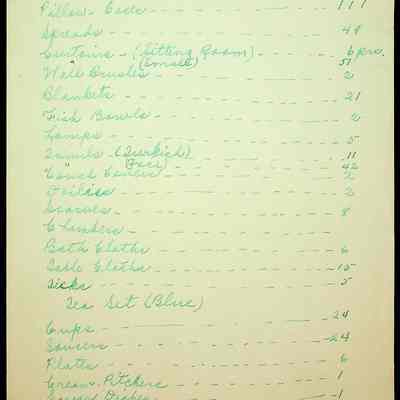 Pillow - Case - 117
Spreads - 44
Curtains - (Sitting Room) - 6 prs.
" (Small) 51
Wall Brushes - 2
Blankets - 21
Fish Bowls - 2
Lamps - 5
Towels - (Turkish) - 11
" Face) - 42
Couch Covers - 2
Doilies - 2
Scarves - 8
Chambers -
Bath Cloths - 6
Table Cloths - 15
Ticks - 5
Tea Set (Blue)
Cups - 24
Saucers - 24
Plates - 6
Cream Pitchers - 1
Dishes - 1